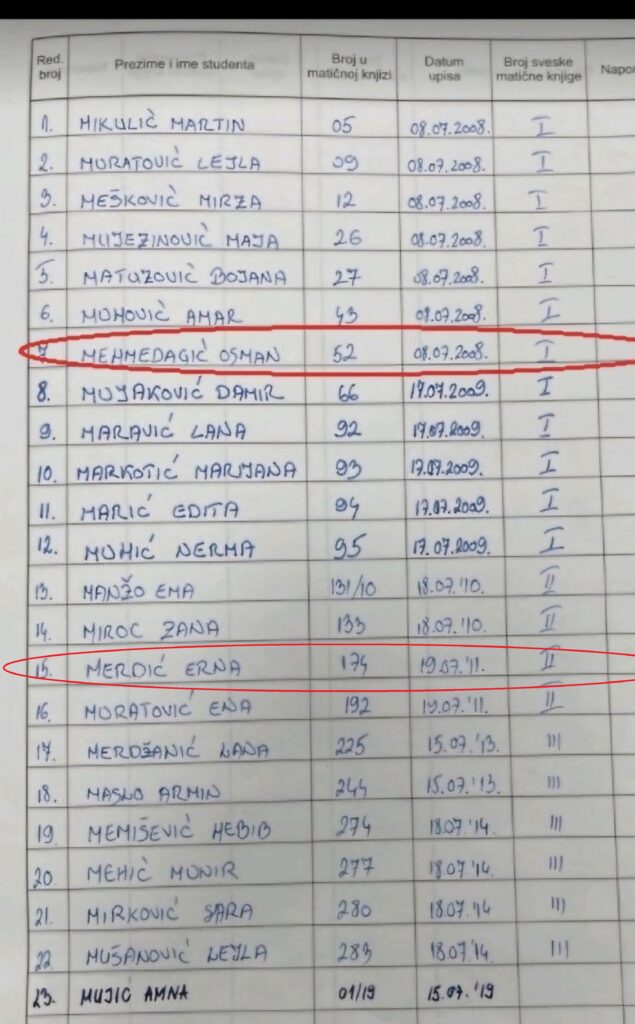 Red. broj Prezime i ime studenta Broj u matičnoj knjizi Datum upisa Broj sveske matične knjige Napo
1. MIKULIĆ MARTIN 05 08.07.2008. I
2. MURATOVIĆ LEJLA 09 08.07.2008. I
3. MEŠKOVIĆ MIRZA 12 08.07.2008. I
4. MUJEZINOVIĆ MAJA 26 08.07.2008. I
5. MATUZOVIĆ BOJANA 27 08.07.2008. I
6. MUHOVIĆ AMAR 43 08.07.2008. I
7 MEHMEDAGIĆ OSMAN 52 08.07.2008. I
8. MUJAKOVIĆ DAMIR 66 17.07.2009. I
9. MARAVIĆ LANA 92 17.07.2009. I
10. MARKOTIĆ MARIJANA 93 17.07.2009. I
11. MARIĆ EDITA 94 17.07.2009. I
12. MUHIĆ NERMA 95 17.07.2009. I
13. MANŽO EMA 131/10 18.07.'10. II
14. MIROC ZANA 133 18.07.'10. II
15. MERDIĆ ERNA 174 19.07.'11. II
16. MURATOVIĆ ENA 192 19.07.'11. II
17. MERDŽANIĆ LANA 225 15.07.'13. III
18. MASLO ARMIN 244 15.07.'13. III
19. MEMIŠEVIĆ HEBIB 274 18.07.'14. III
20. MEHIĆ MUNIR 277 18.07.'14. III
21. MIRKOVIĆ SARA 280 18.07.'14 III
22. MUŠANOVIĆ LEJLA 283 18.07.'14. III
23. MUJIĆ AMNA 01/19 15.07.'19